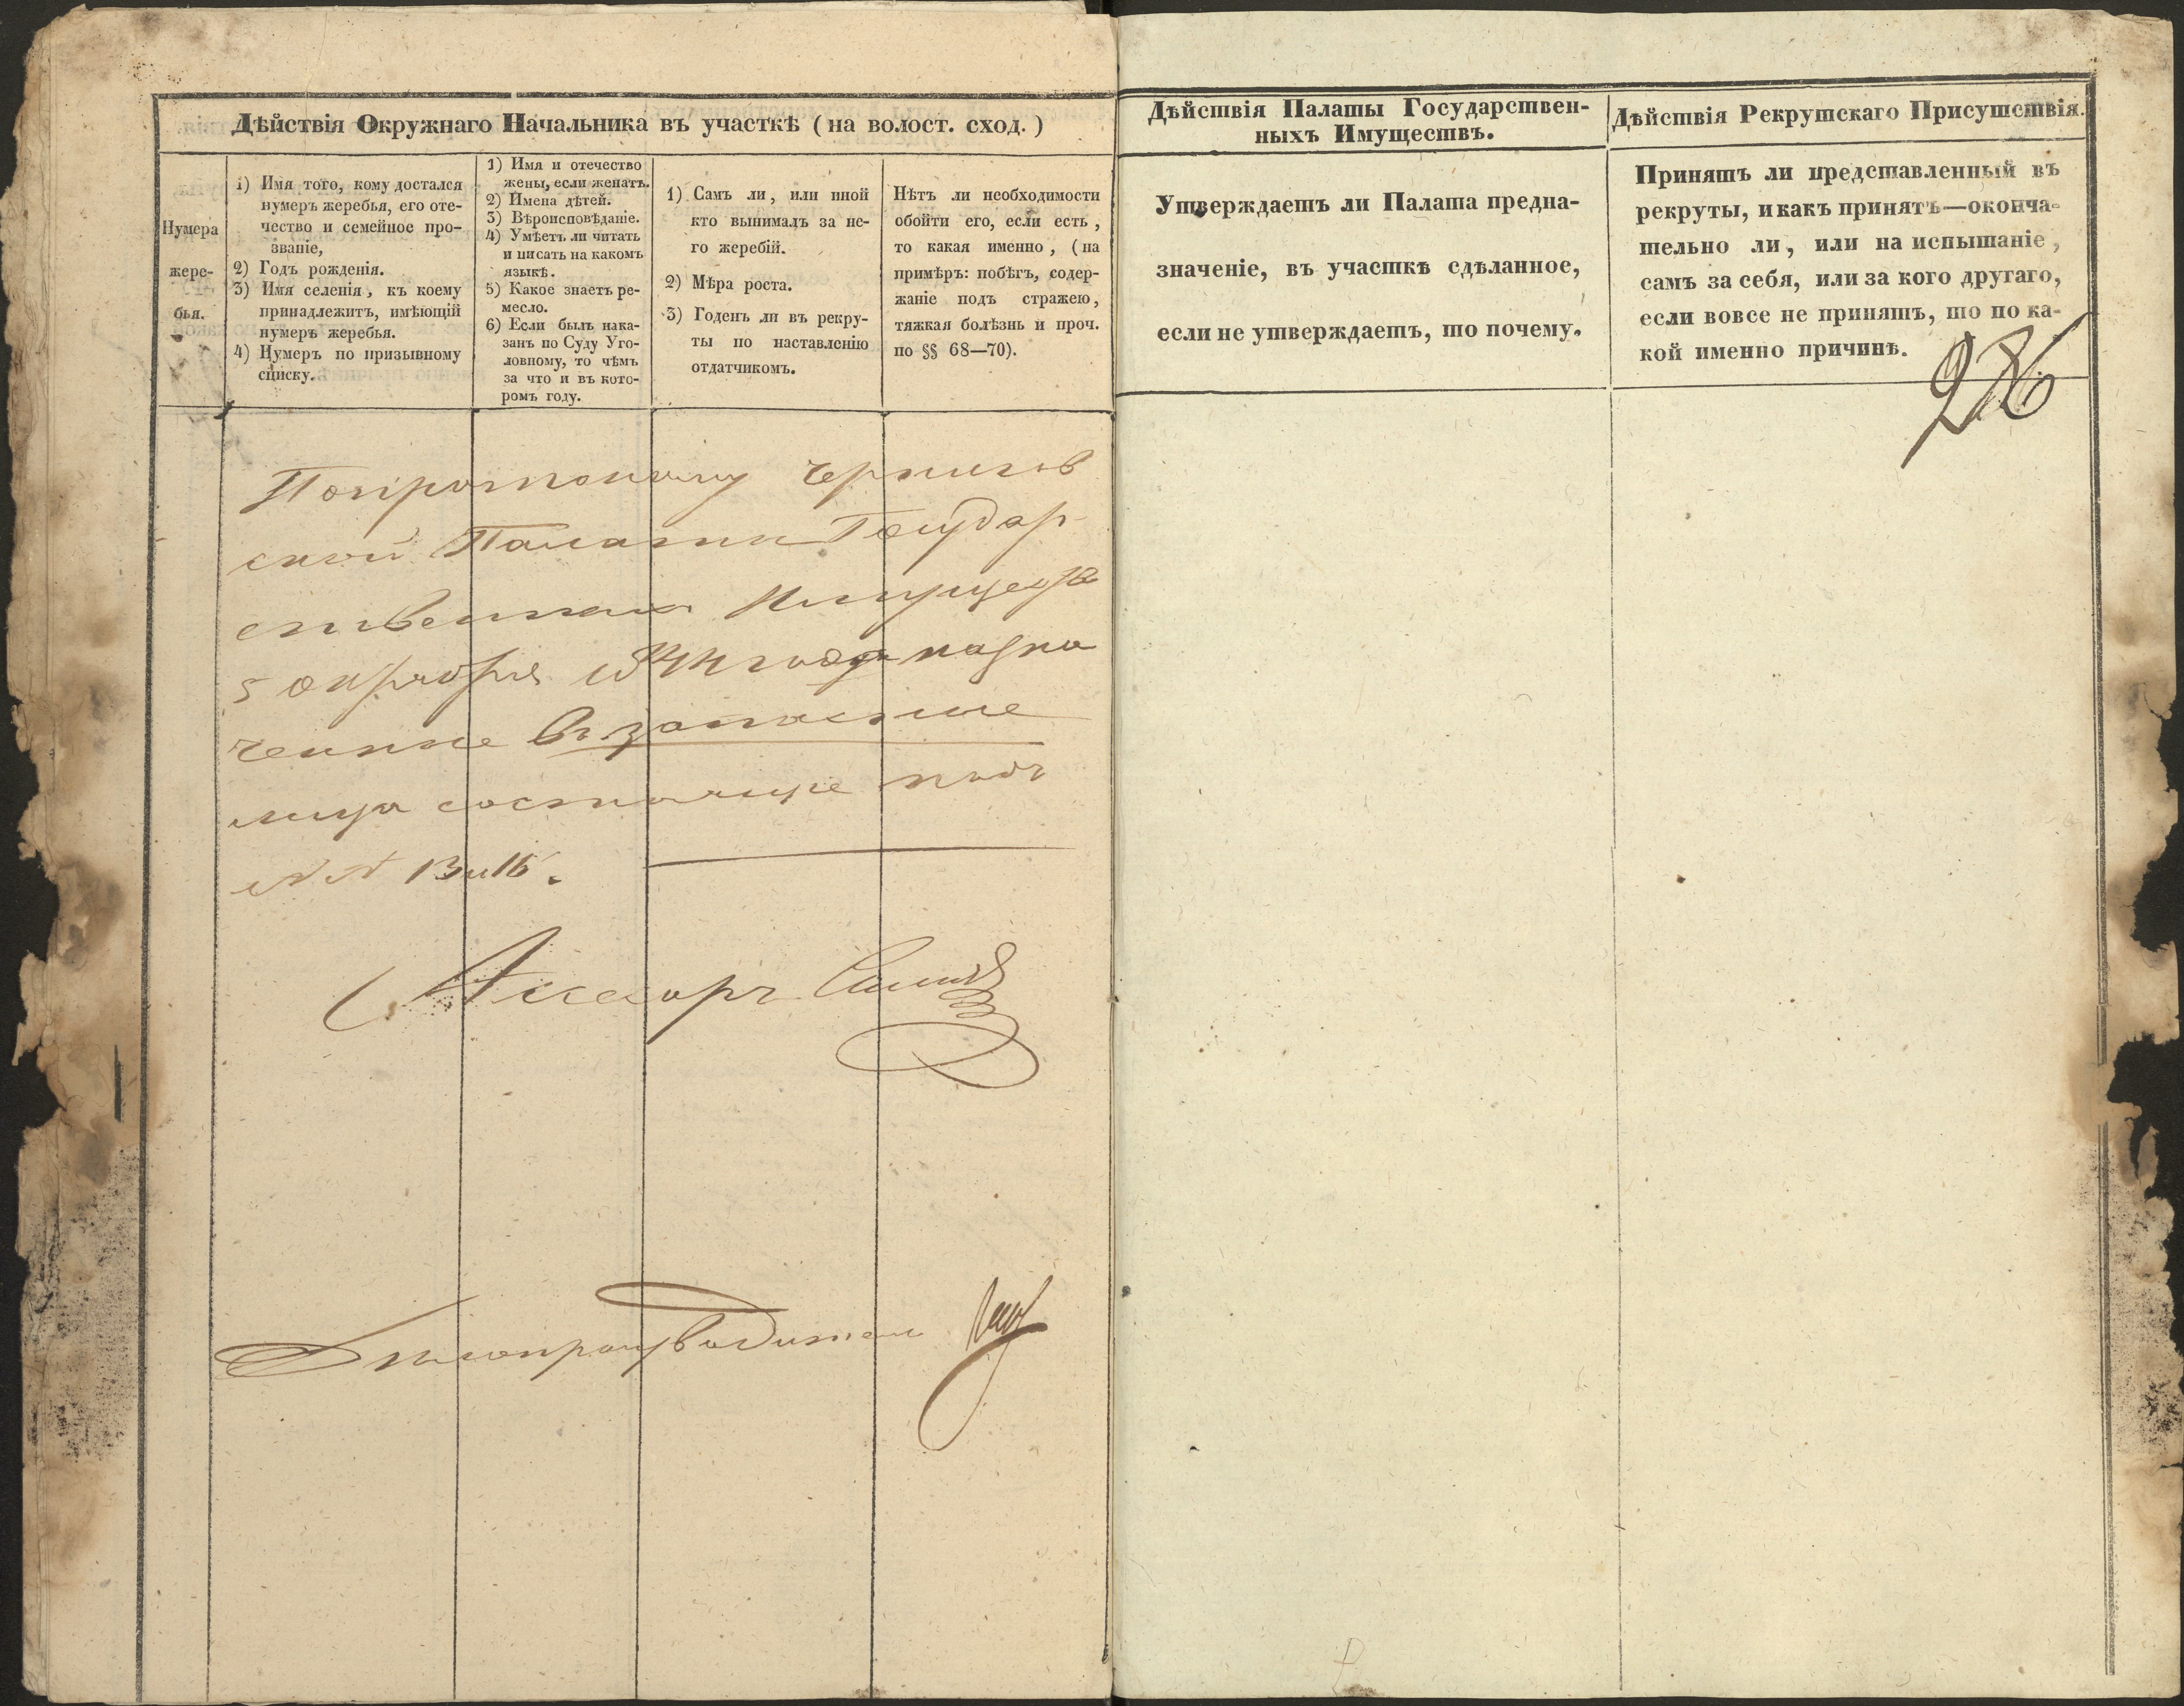 Дѣйствія Окружнаго Начальника въ участкѣ (на волост. сход.)
Нумера
жере-
бья.
1) Имя того, кому достался
нумеръ жеребья, его оте-
чество и семейное про-
званіе,
2) Годъ рожденія.
3) Имя селенія, къ коему
принадлежитъ, имѣющій
нумеръ жеребья.
4) Нумеръ по призывному
списку.
1) Имя и отечество
жены, если женатъ.
2) Имена дѣтей.
3) Вѣроисповѣданіе.
4) Умѣетъ ли читать
и писать на какомъ
языкѣ.
5) Какое знаетъ ре-
месло.
6) Если былъ нака-
занъ по Суду Уго-
ловному, то чѣмъ
за что и въ кото-
ромъ году.
1) Самъ ли, или иной
кто вынималъ за не-
го жеребій.
2) Мѣра роста.
3) Годенъ ли въ рекру-
ты по наставленію
отдатчикомъ.
Нѣтъ ли необходимости
обойти его, если есть,
то какая именно, (на
примѣръ: побѣгъ, содер-
жаніе подъ стражею,
тяжкая болѣзнь и проч.
по §§ 68—70).
По протоколу Чернигов
ской Палаты Государ
ственныхъ Имуществъ
5 октября 1844 года назна
ченные въ запасные
лица состоящие подъ
№№ 13 и 16.
Асесоръ
Делопроизводитель
Дѣйствія Палаты Государствен-
ныхъ Имуществъ.
Утверждаетъ ли Палата предна-
значеніе, въ участкѣ сдѣланное,
если не утверждаетъ, то почему.
Дѣйствія Рекрутскаго Присутствія.
Принятъ ли представленный въ
рекруты, и какъ принятъ—оконча-
тельно ли, или на испытаніе,
самъ за себя, или за кого другаго,
если вовсе не принятъ, то по ка-
кой именно причинѣ.
286